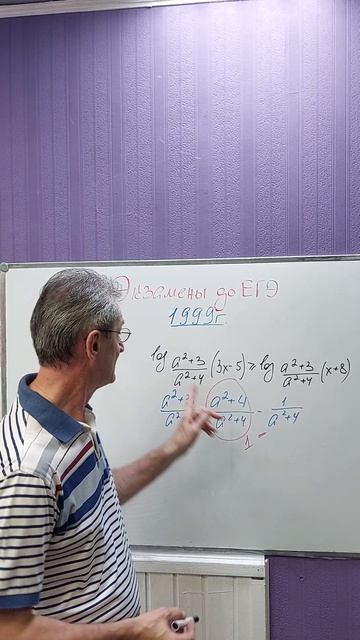 Экзамены до ЕГЭ
1999г.
log (a²+3)/(a²+4) (3x-5) ≥ log (a²+3)/(a²+4) (x+8)
(a²+4)/(a²+4) - 1/(a²+4)
1